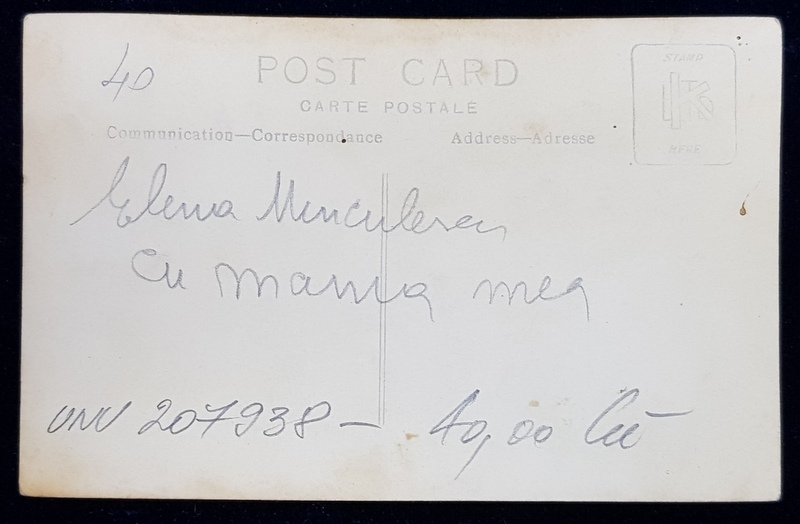 40
POST CARD
CARTE POSTALE
Communication—Correspondance
Address—Adresse
STAMP
HERE
Elena Minculescu
Cu mama mea
207938 — 40,00 lei